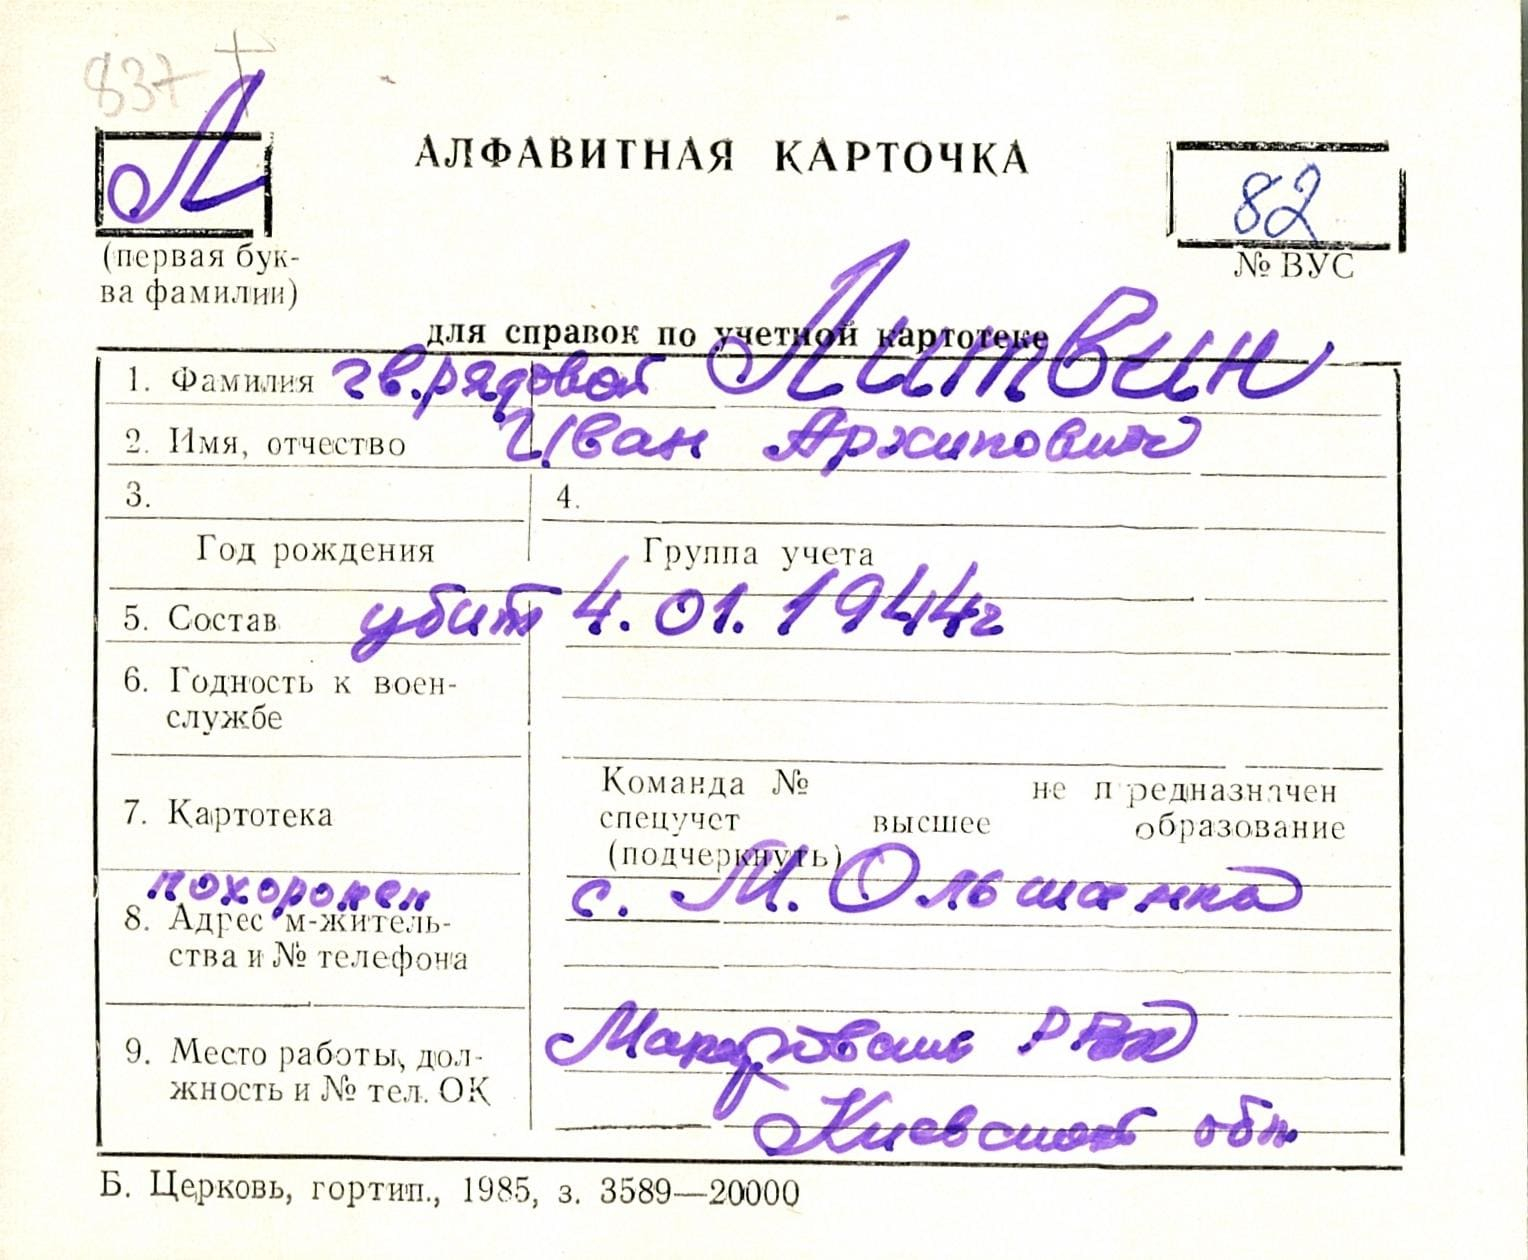 837 †
Л
АЛФАВИТНАЯ КАРТОЧКА
82
(первая бук-
ва фамилии)
№ ВУС
для справок по учетной картотеке
1. Фамилия гв. рядовой Литвин
2. Имя, отчество Иван Архипович
3. 4.
Год рождения Группа учета
5. Состав убит 4.01.1944г
6. Годность к воен-
службе
Команда № не предназначен
7. Картотека спецучет высшее образование
(подчеркнуть)
похоронен с. М. Ольшанка
8. Адрес м-житель-
ства и № телефона
Макаровский
9. Место работы, дол-
жность и № тел. ОК
Киевской обл.
Б. Церковь, гортип., 1985, з. 3589—20000